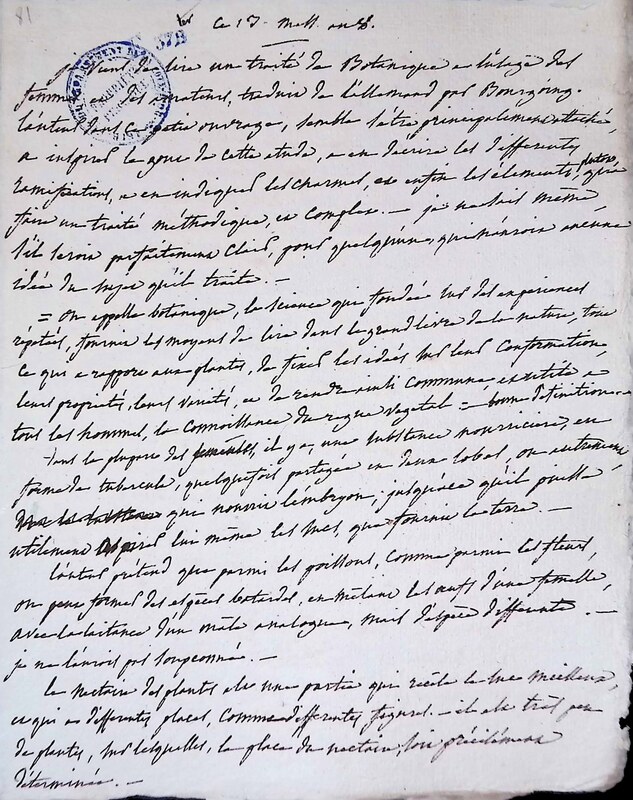 81
ce 17 mess. an 8.
372
je viens de lire un traité de Botanique a l'usage des
femmes et des amateurs, traduit de l'allemand par Bourgoing.
l'auteur dans ce petit ouvrage, semble s'être principalement attaché,
a inspirer le gout de cette etude, a en decrire les differentes
ramifications, a en indiquer les charmes, et enfin les elements, plutot qu'a
faire un traité méthodique, et complet. — je ne sais même
s'il seroit parfaitement clair, pour quelqu'un, qui n'auroit aucune
idée du sujet qu'il traite. —
= on appelle botanique, la science qui fondée sur des experiences
répétées, fournit les moyens de lire dans le grand livre de la nature, tout
ce qui a rapport aux plantes, de fixer les idées sur leur conformation,
leurs propriétés, leurs variétés, et de rendre ainsi commune, et utile a
tous les hommes, la connoissance du regne vegetal = bonne definition. —
dans la plupart des semences, il y a, une substance nourriciere, en
forme de tubercule, quelquefois partagée en deux lobes, ou autrement
que nourrit l'embryon, jusqu'a ce qu'il puisse
utilement lui même les sucs, que fournit la terre. —
l'auteur prétend que parmi les poissons, comme parmi les fleurs,
on peut former des espèces batardes, en mêlant les œufs d'une femelle,
avec la laitance d'un male analogue, mais d'espèce differente. —
je ne l'aurois pas soupçonné. —
le nectaire des plantes est une partie qui recele le suc mielleux,
et qui a differentes places, comme differentes figures. — il est très peu
de plantes, sur lesquelles, la place du nectaire, soit précisément
déterminée. —